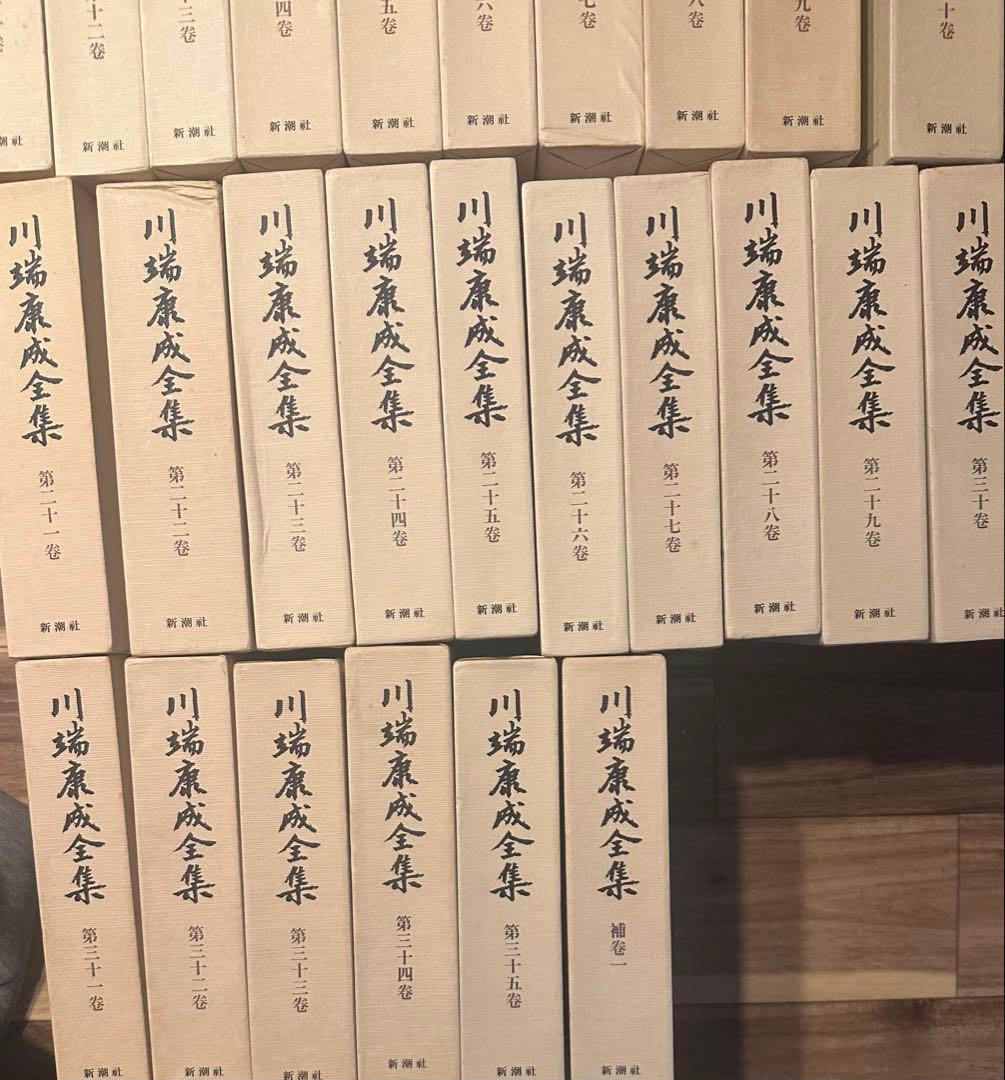 卷
新潮社
十二卷
新潮社
十三卷
新潮社
四卷
新潮社
五卷
新潮社
六卷
新潮社
七卷
新潮社
八卷
新潮社
九卷
新潮社
十卷
新潮社
川端康成全集
第二十一卷
新潮社
川端康成全集
第二十二卷
新潮社
川端康成全集
第二十三卷
新潮社
川端康成全集
第二十四卷
新潮社
川端康成全集
第二十五卷
新潮社
川端康成全集
第二十六卷
新潮社
川端康成全集
第二十七卷
新潮社
川端康成全集
第二十八卷
新潮社
川端康成全集
第二十九卷
新潮社
川端康成全集
第三十卷
新潮社
川端康成全集
第三十一卷
新潮社
川端康成全集
第三十二卷
新潮社
川端康成全集
第三十三卷
新潮社
川端康成全集
第三十四卷
新潮社
川端康成全集
第三十五卷
新潮社
川端康成全集
補卷一
新潮社